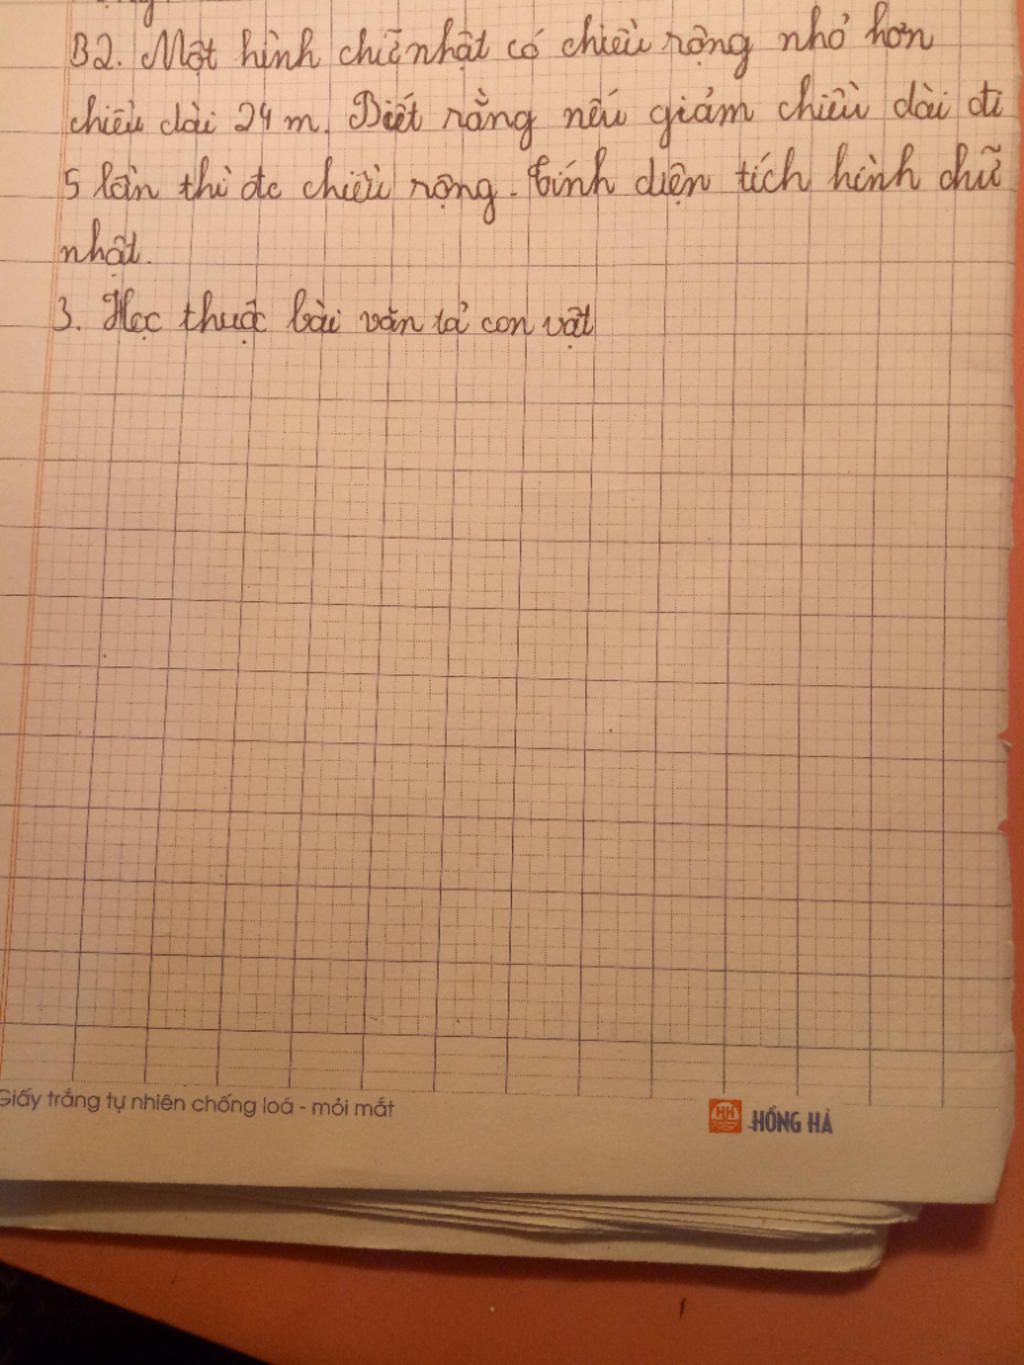 B2. Một hình chữ nhật có chiều rộng nhỏ hơn
chiều dài 24 m. Biết rằng nếu giảm chiều dài đi
5 lần thì đc chiều rộng. Tính diện tích hình chữ
nhật.
3. Học thuộc bài văn tả con vật
Giấy trắng tự nhiên chống loá - mỏi mắt
HH HỒNG HÀ